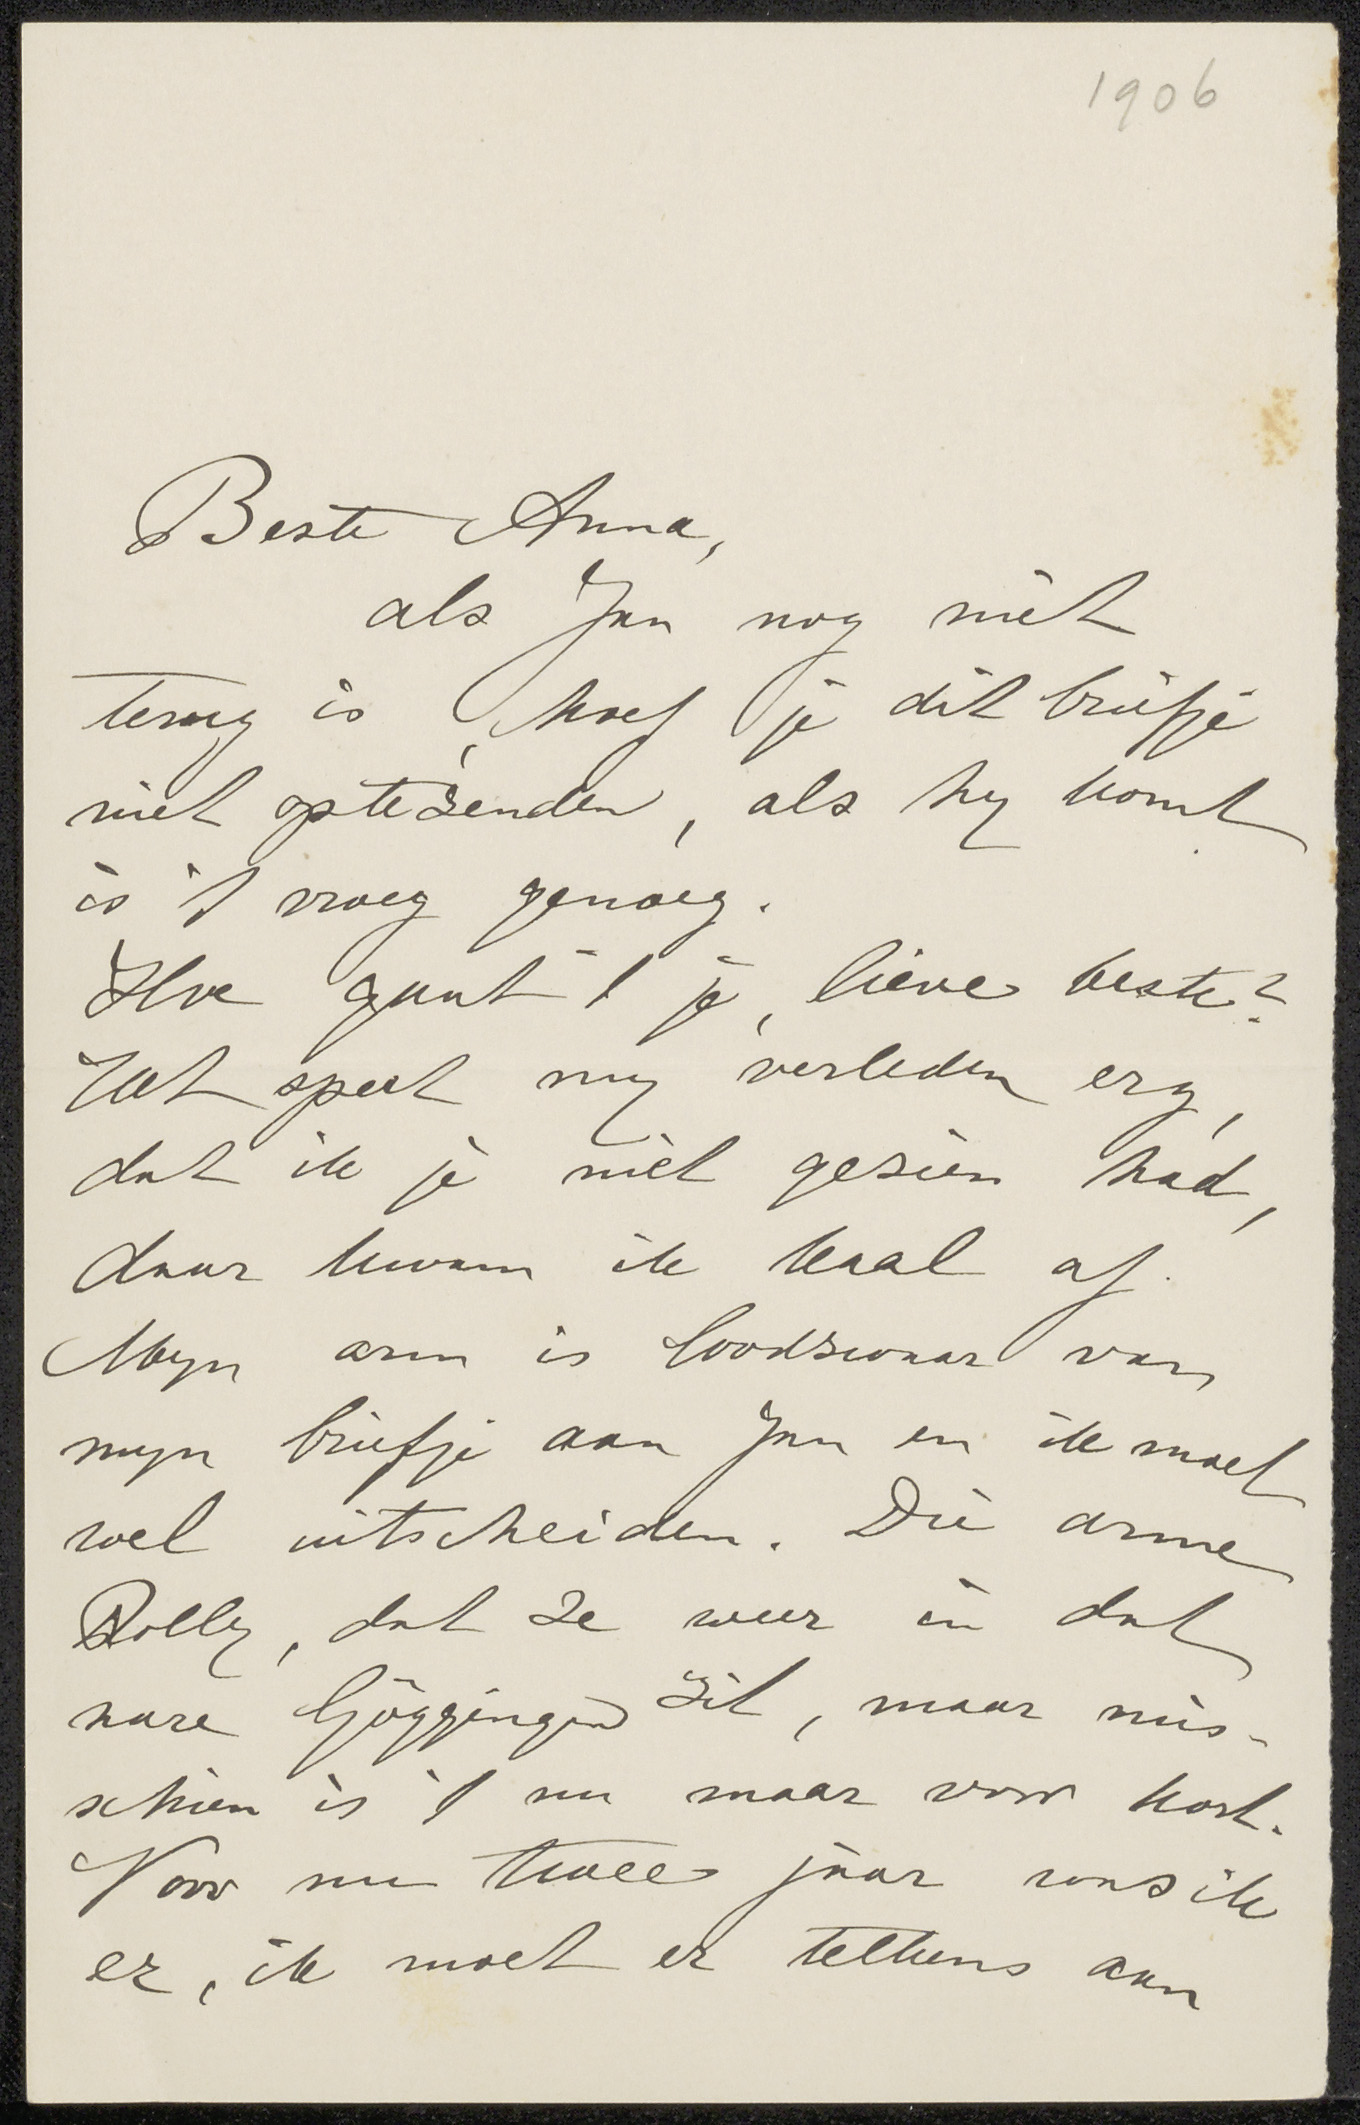 1906
Beste Anna,
als Jan nog niet
terug is, hoef je dit briefje
niet optezenden, als hy komt
is 't vroeg genoeg.
Hoe gaat 't je, lieve beste?
Het speet my verleden erg,
dat ik je niet gezien had,
daar kwam ik kaal af.
Myn arm is loodzwaar van
myn briefje aan Jan en ik moet
wel uitscheiden. Die arme
Dolly, dat ze weer in dat
nare Göggingen zit, maar mis-
schien is 't nu maar voor kort.
Voor nu twee jaar was ik
er, ik moet er telkens aan